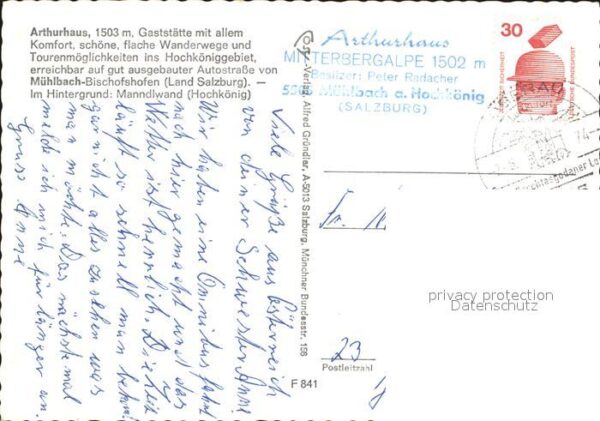 Arthurhaus, 1503 m, Gaststätte mit allem
Komfort, schöne, flache Wanderwege und
Tourenmöglichkeiten ins Hochköniggebiet,
erreichbar auf gut ausgebauter Autostraße von
Mühlbach-Bischofshofen (Land Salzburg). —
Im Hintergrund: Manndlwand (Hochkönig)
Arthurhaus
MITTERBERGALPE 1502 m
Besitzer: Peter Radacher
5505 Mühlbach a. Hochkönig
(SALZBURG)
30
DEUTSCHE BUNDESPOST
Viele Grüße aus Österreich
von deiner Schwester Anne
Wir haben eine Omnibusfahrt
nach hier gemacht und das
Wetter ist herrlich. Die Zeit
läuft so schnell man kann
gar nicht alles zu sehen was
man möchte. Das nächste mal
melde ich mich für länger an.
Gruss Anne
Verlag Alfred Gründler, A-5013 Salzburg, Münchner Bundesstr. 156
F 841
23
Postleitzahl
privacy protection
Datenschutz